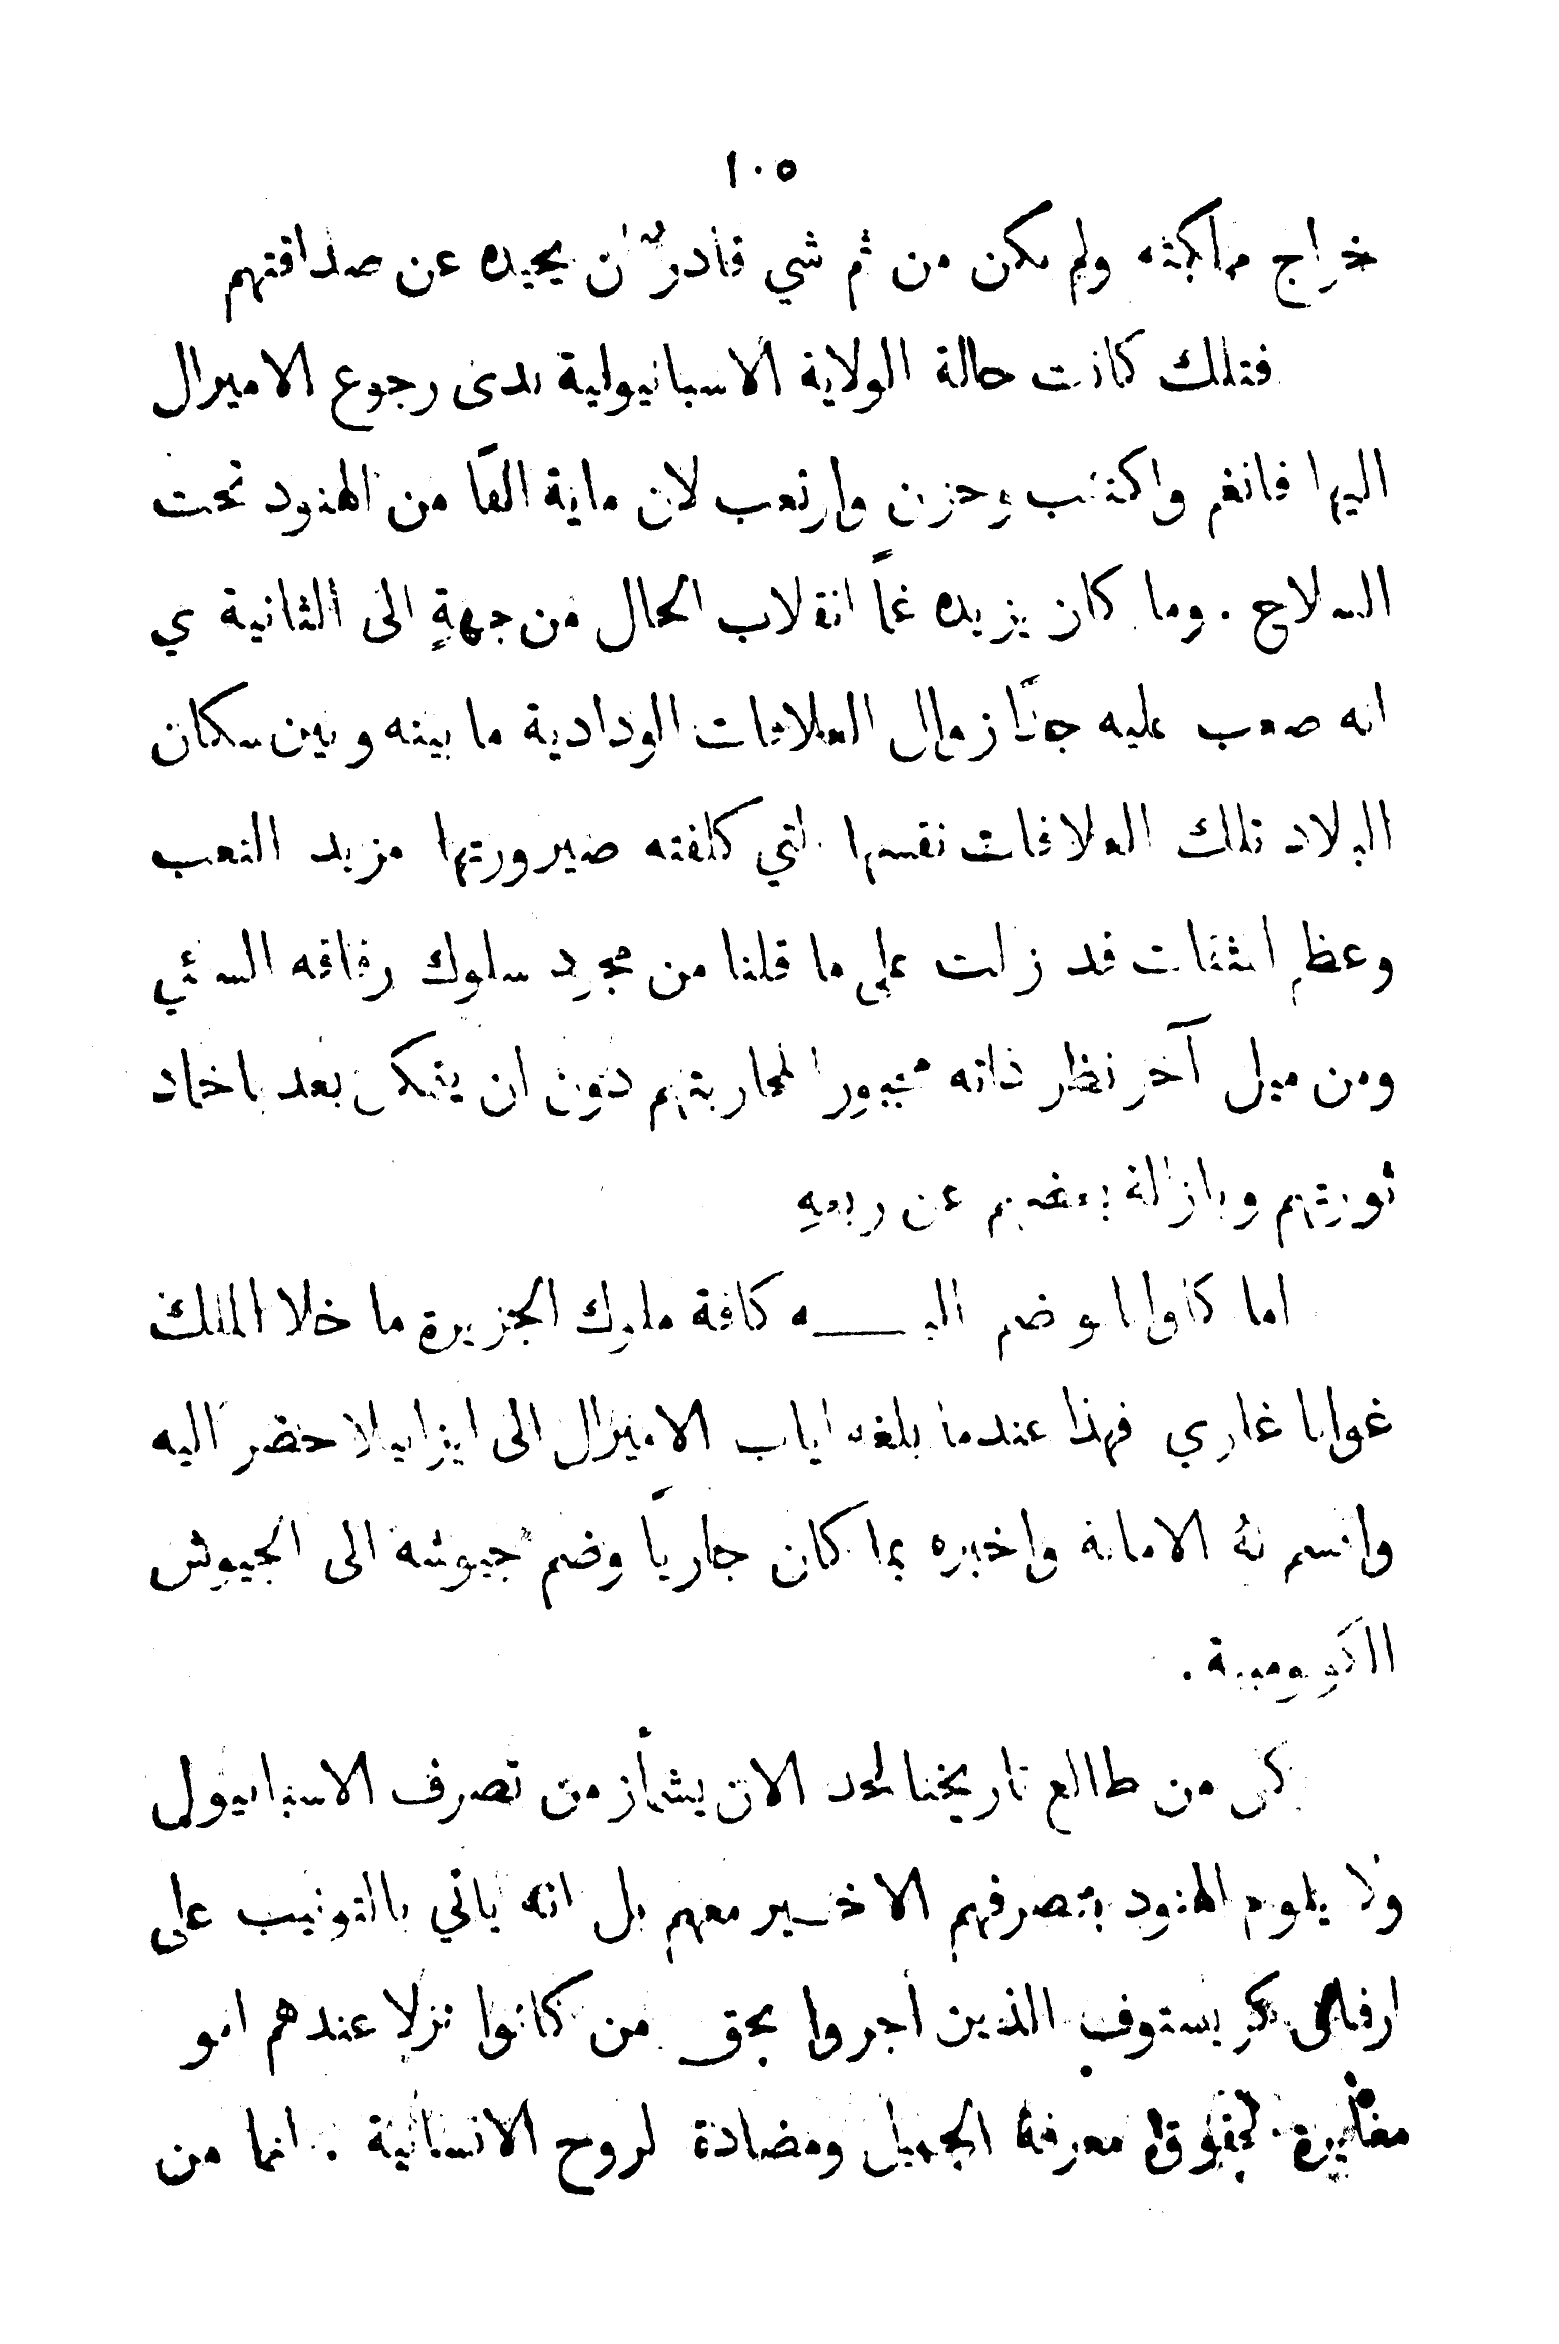 ١٠٥
خراج مملكته ولم يكن من ثم شي قادرٌ ان يحيده عن صداقتهم
فتلك كانت حالة الولاية الاسبانيولية لدى رجوع الاميرال
اليها فانغم واكتئب وحزن وارتعب لان ماية الفًا من الهنود تحت
السلاح . وما كان يزيده غمًا انقلاب الحال من جهةٍ الى الثانية ي
انه صعب عليه جدًا زوال العلاقات الودادية ما بينه وبين سكان
البلاد تلك العلاقات نفسها التي كلفته صيرورتها مزيد التعب
وعظم النفقات قد زالت على ما قلنا من مجرد سلوك رفاقه السئي
ومن ميل آخر نظر ذاته مجبورا لمحاربتهم دون ان يتمكن بعد باخماد
ثورتهم وبازالة بغضهم عن ربعهِ
اما كانوابو ضم اليـــه كافة ملوك الجزيرة ما خلا الملك
غوانا غاري فهذا عندما بلغه اياب الاميرال الى ايزابيلا حضر اليه
واقسم لهُ الامانة واخبره بما كان جاريًا وضم جيوشه الى الجيوش
الكولومبية .
كل من طالع تاريخنا لحد الان يشمأز من تصرف الاسبانيولي
ولا يلوم الهنود بتصرفهم الاخــير معهم بل انه ياتي بالتونيب على
ارفاق كريستوف الذين اجروا بحق من كانوا نزلا عندهم امو
مغايرة لحقوق معرفة الجميل ومضادة لروح الانسانية . انما من